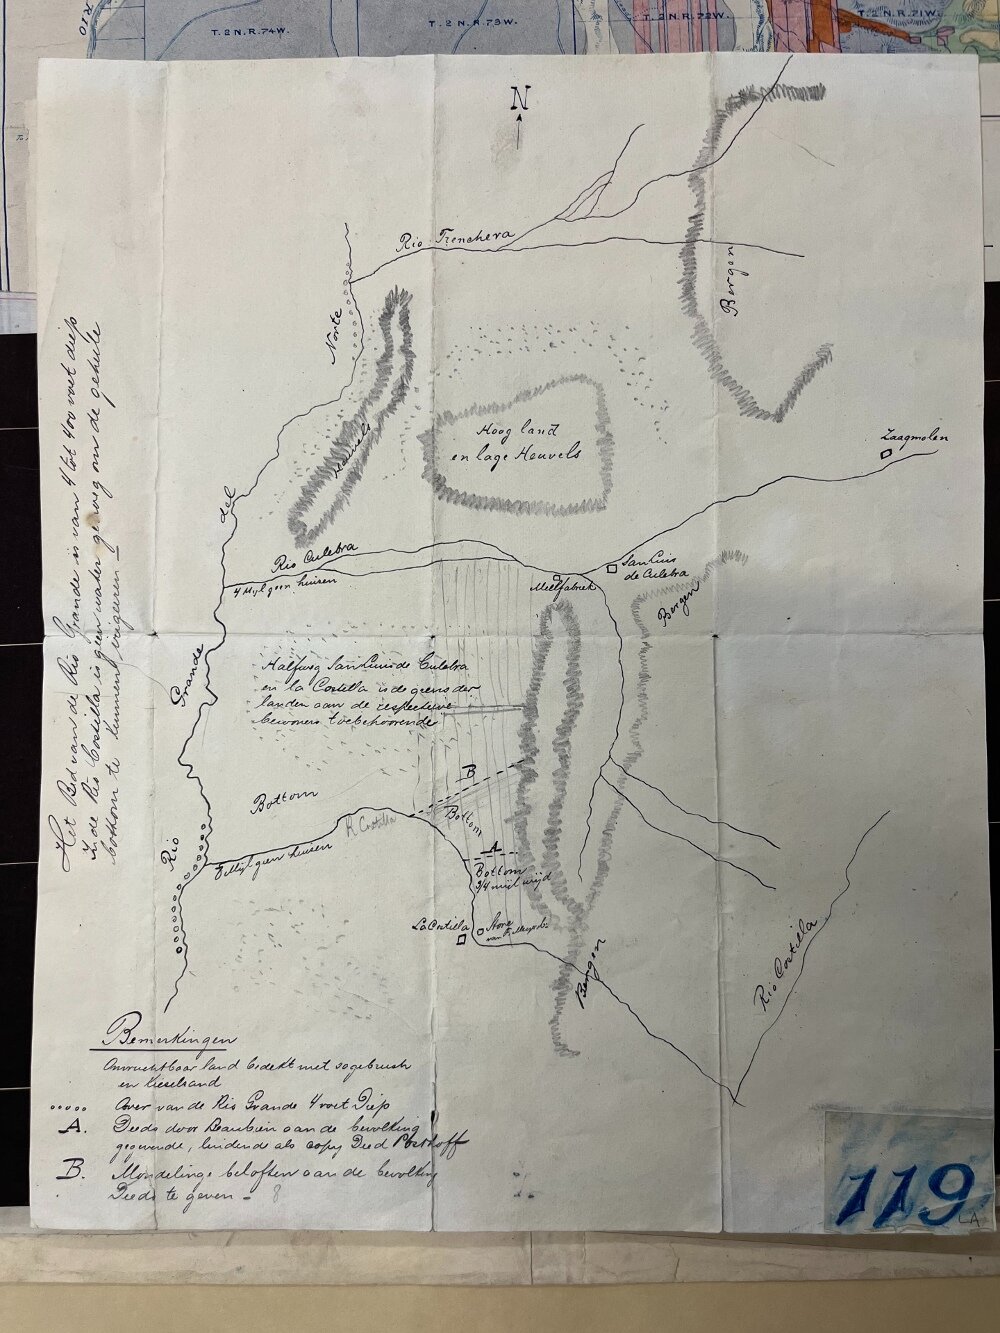 T. 2 N. R. 74 W.
T. 2 N. R. 73 W.
T. 2 N. R. 72 W.
T. 2 N. R. 71 W.
RIO
N
Rio Trenchera
Norte
Bergen
Heuvels
Hoog land
en lage Heuvels
Zaagmolen
del
Rio Culebra
4 Myl geen huisen
Meelfabriek
San Luis
de Culebra
Bergen
Grande
Halfweg San Luis de Culebra
en la Costilla is de grens der
landen aan de respectieve
bewoners toebehoorende
B
Bottom
R. Costilla
Bottom
A
Rio
Myl geen huisen
Bottom
3/4 mijl wijd
La Costilla
Store
van
Bergen
Rio Costilla
Het Bed van de Rio Grande is van 4 tot 400 voet diep
in de Rio Costilla is geen water genoeg om de geheele
bottom te kunnen irrigeeren
Bemerkingen
Onvruchtbaar land bedekt met sagebrush
en Kieselsand
..... Oever van de Rio Grande 4 voet Diep
A. Deeds door Beaubien aan de bevolking
gegevende, luidend als copy Deed Posthoff
B. Mondelinge beloften aan de bevolking
Deeds te geven -
119
LA